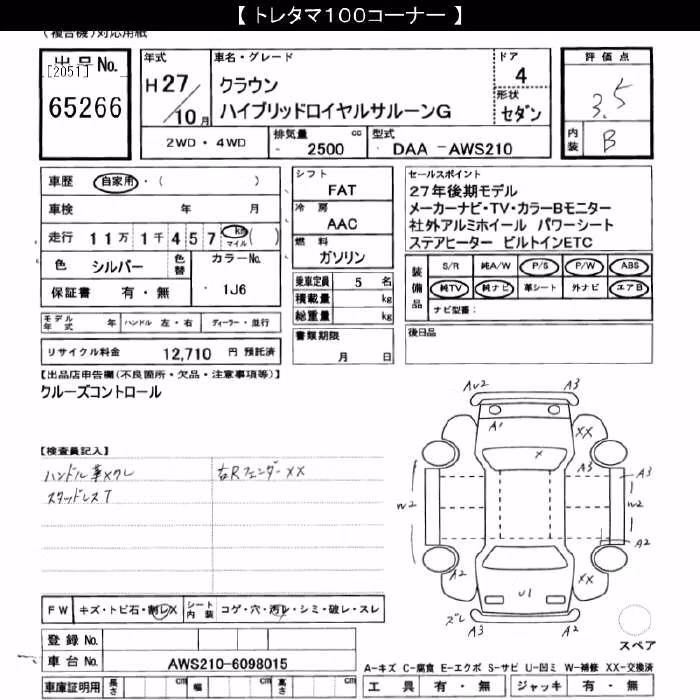 【 トレタマ100コーナー 】
(複合機)対応用紙
出品No.
[2051]
65266
年式
H 27
10 月
車名・グレード
クラウン
ハイブリッドロイヤルサルーンG
ドア
4
形状
セダン
2WD ・ 4WD
排気量 cc
2500
型式
DAA -AWS210
評価点
3.5
内装
B
車歴 自家用・( )
車検 年 月
走行 11万 1千 457 km マイル ( )
色 シルバー 色替 カラーNo. 1J6
保証書 有・無
シフト
FAT
冷房
AAC
燃料
ガソリン
乗車定員 5 名
積載量 kg
総重量 kg
書類期限
月 日
セールスポイント
27年後期モデル
メーカーナビ・TV・カラーBモニター
社外アルミホイール パワーシート
ステアヒーター ビルトインETC
装備品
S/R 純A/W P/S P/W ABS
純TV 純ナビ 革シート 外ナビ エアB
ナビ型番:
後日品
モデル年式 年 ハンドル 左・右 ディーラー・並行
リサイクル料金 12,710 円 預託済
【出品店申告欄(不良箇所・欠品・注意事項等)】
クルーズコントロール
【検査員記入】
ハンドル革メクレ 右Rフェンダーxx
スタッドレスT
FW キズ・トビ石・割レX シート内装 コゲ・穴・汚レ・シミ・破レ・スレ
登録No.
車台No. AWS210-6098015
車庫証明用 長さ cm 幅 cm 高さ cm
AU2 A3
A1 XX
X
A3 A3
W2 W2
A2
A2 XX
U1
ズレ
A3 A2
スペア
A-キズ C-腐食 E-エクボ S-サビ U-凹ミ W-補修 XX-交換済
工具 有・無 ジャッキ 有・無